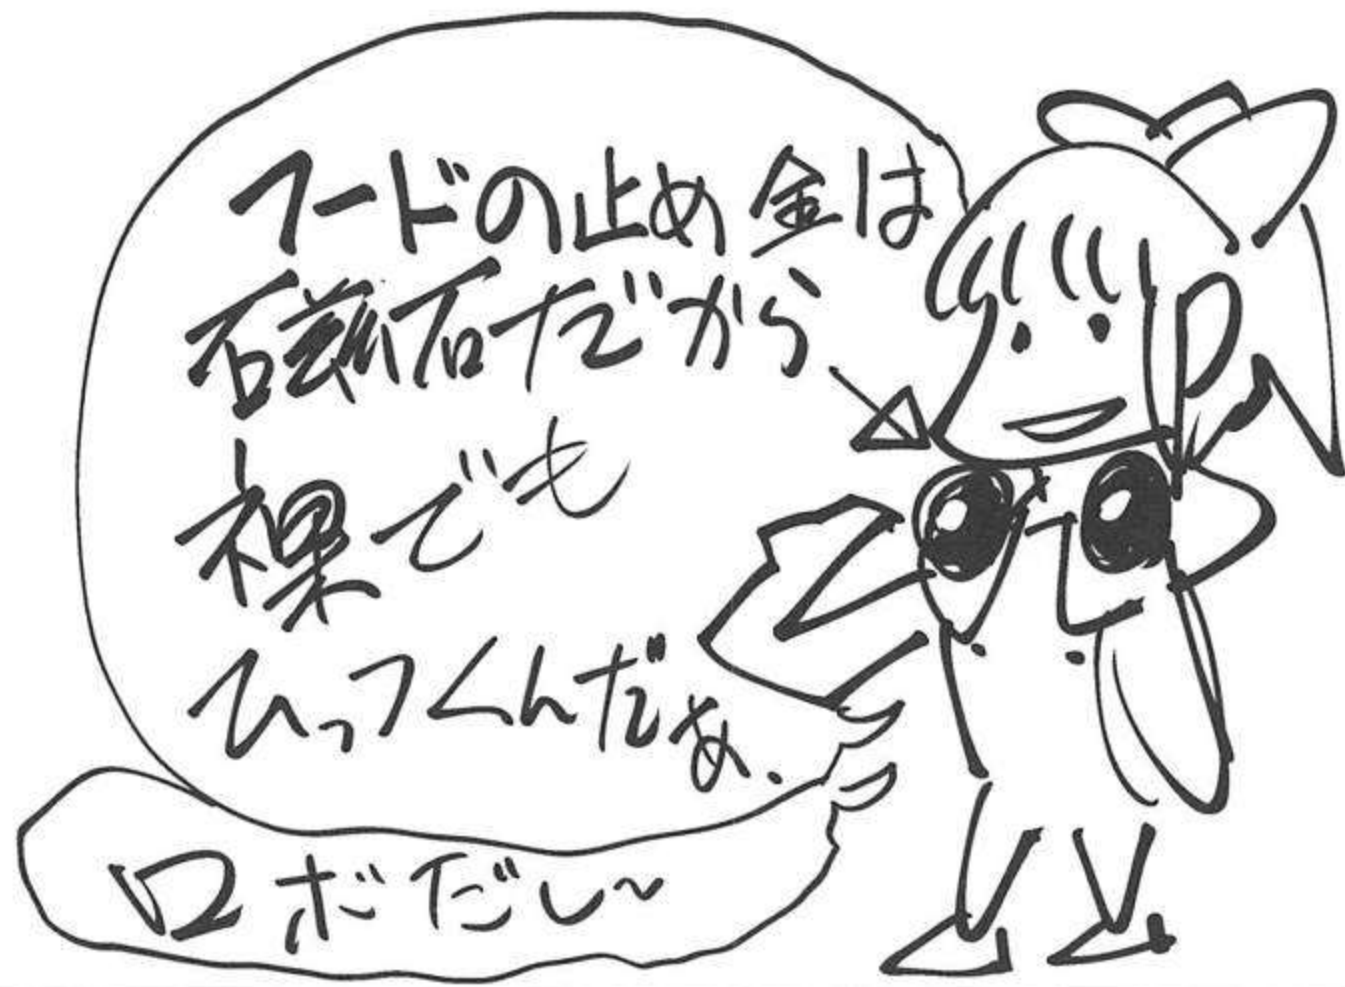 フードの止め金は
磁石だから
裸でも
ひっつくんだぁ.
ロボだし~